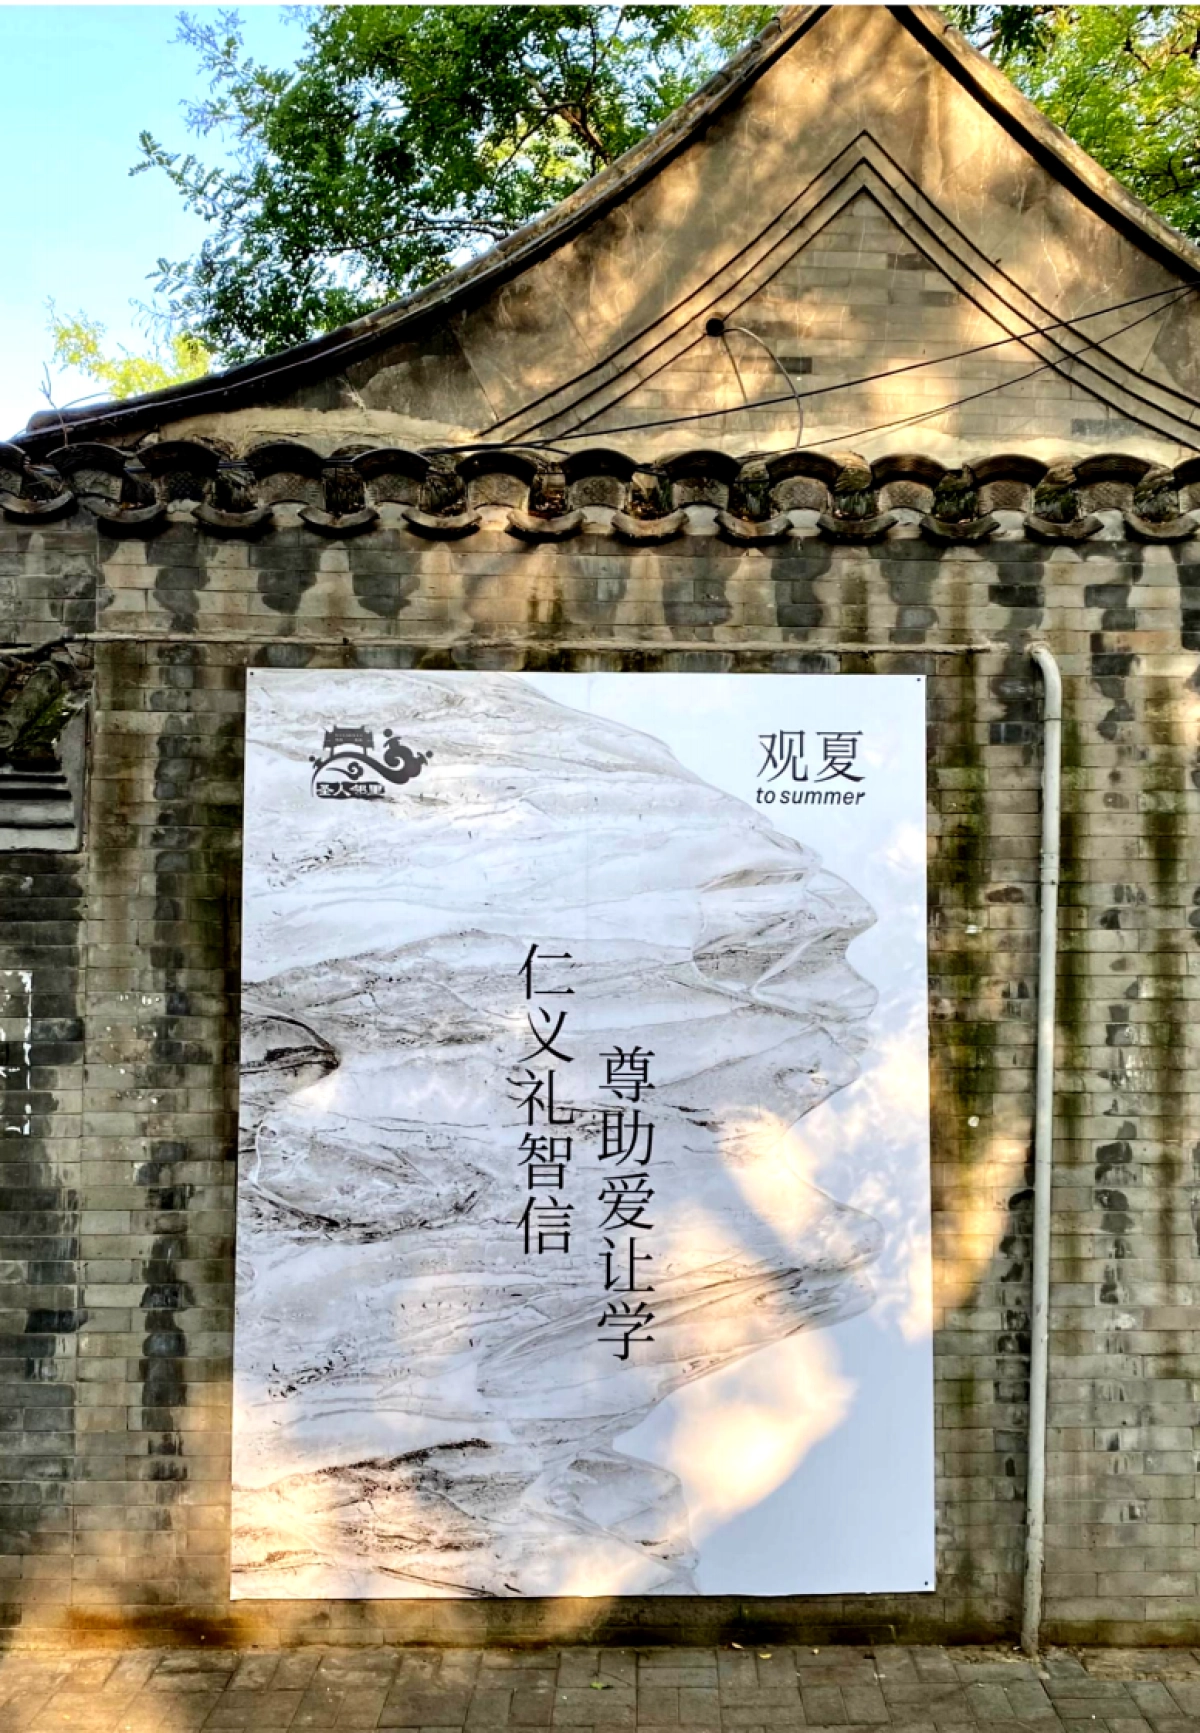 圣人邻里
观夏
to summer
仁义礼智信
尊助爱让学